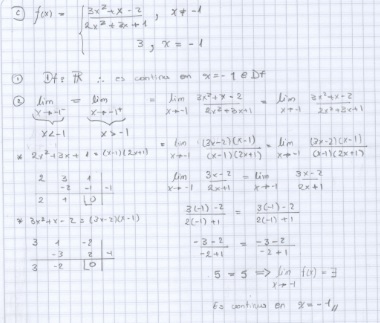 c) f(x) = { (3x² + x - 2)/(2x² + 3x + 1) , x ≠ -1
3 , x = -1
① Df = ℝ ∴ es continua en x = -1 ∈ Df
② lim x→-1⁻ = lim x→-1⁺ = lim x→-1 (3x²+x-2)/(2x²+3x+1) = lim x→-1 (3x²+x-2)/(2x²+3x+1)
x<-1 x>-1
* 2x²+3x+1 = (x-1)(2x+1) = lim x→-1 (3x-2)(x-1)/(x-1)(2x+1) = lim x→-1 (3x-2)(x-1)/(x-1)(2x+1)
2 3 1
-2 -1 -1
2 1 |0
lim x→-1 (3x-2)/(2x+1) = lim x→-1 (3x-2)/(2x+1)
* 3x²+x-2 = (3x-2)(x-1)
(3(-1)-2)/(2(-1)+1) = (3(-1)-2)/(2(-1)+1)
3 1 -2
-3 2 -1
3 -2 |0
(-3-2)/(-2+1) = (-3-2)/(-2+1)
5 = 5 => lim x→-1 f(x) = ∃
Es continua en x = -1 //